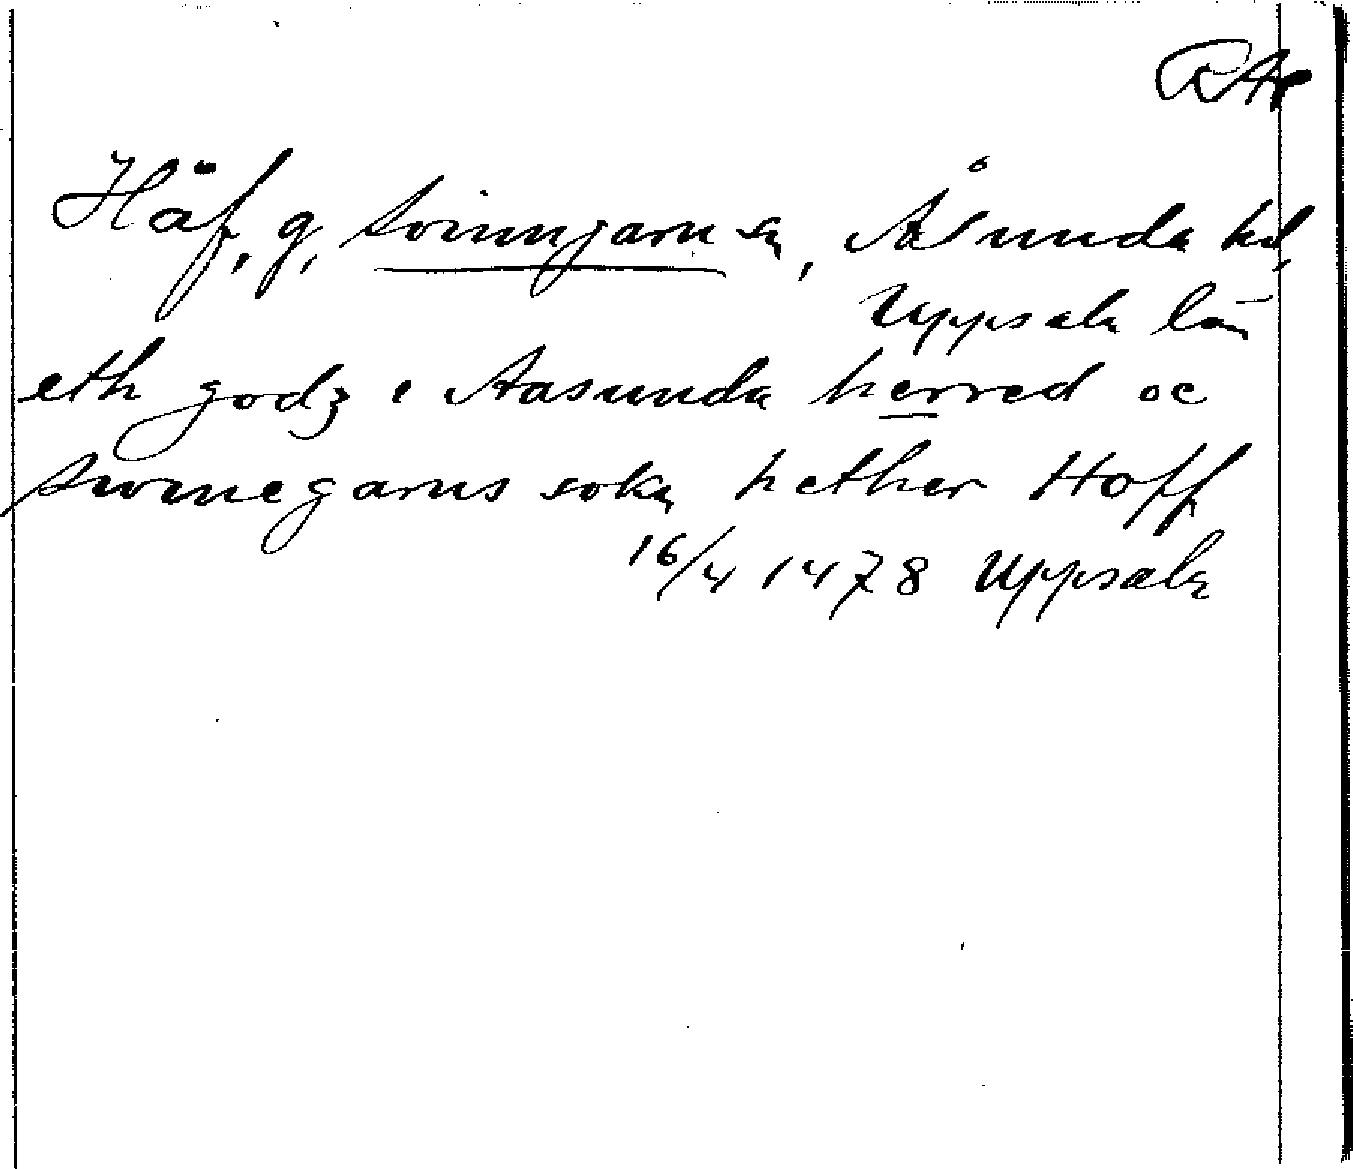 RAp
Häf, g, Svinngarn sn, Åsunda hd,
Uppsala län
eth godz i Aasunda herred oc
swinegarns sokn hether Hoff
16/4 1478 Uppsala